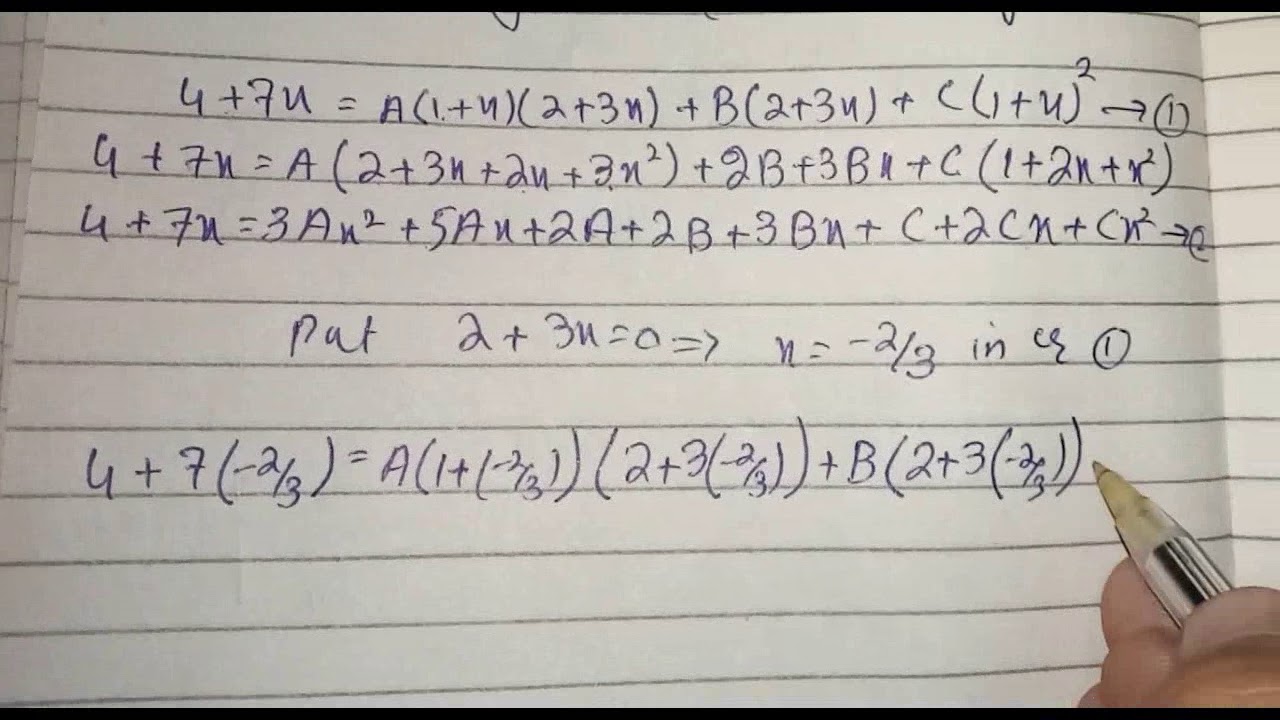 4+7x = A(1+x)(2+3x) + B(2+3x) + C(1+x)² → ①
4 + 7x = A(2+3x+2x+3x²) + 2B+3Bx + C(1+2x+x²)
4 + 7x = 3Ax² + 5Ax + 2A + 2B + 3Bx + C + 2Cx + Cx² →
Put 2 + 3x = 0 => x = -2/3 in eq ①
4 + 7(-2/3) = A(1+(-2/3))(2+3(-2/3)) + B(2+3(-2/3))